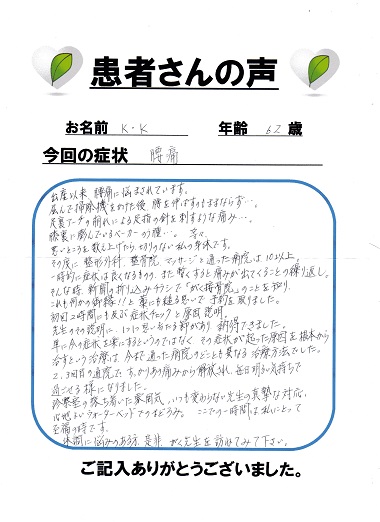 患者さんの声
お名前 K・K 年齢 62 歳
今回の症状 腰痛
出産以来 腰痛に悩まされています。
屈んで掃除機をかけた後 腰を伸ばすのもままならず…。
足裏アーチの崩れによる足指の針を刺すような痛み…。
膝裏に膨んでいるベーカーのう腫…。 等々
悪いところを数え上げたら、切りのない私の身体です。
その度に 整形外科、整骨院、マッサージと通った病院は10以上。
一時的に症状は良くなるものの、また暫くすると痛みが出てくることの繰り返し。
そんな時、新聞の折り込みチラシで「がく接骨院」のことを知り、
これも何かの御縁!!と 藁にも縋る思いで 予約を取りました。
初回2時間にも及ぶ症状チェックと原因説明。
先生のその説明に、いちいち思いあたる節があり 納得できました。
単に今の症状を楽にするというのではなく、その症状が起った原因を根本から
治すという治療は、今まで通った病院のどことも異なる治療方法でした。
2、3回目の通院で、すっかりあの痛みから解放され、毎日明るい気持ちで
過ごせる様になりました。
診察室の落ち着いた雰囲気、いつも変わらない先生の真摯な対応、
心地よいウォーターベッドでのまどろみ。 ここでの一時間は私にとって
至福の時です。
体調に悩みのある方、是非、がく先生を訪ねてみて下さい。
ご記入ありがとうございました。